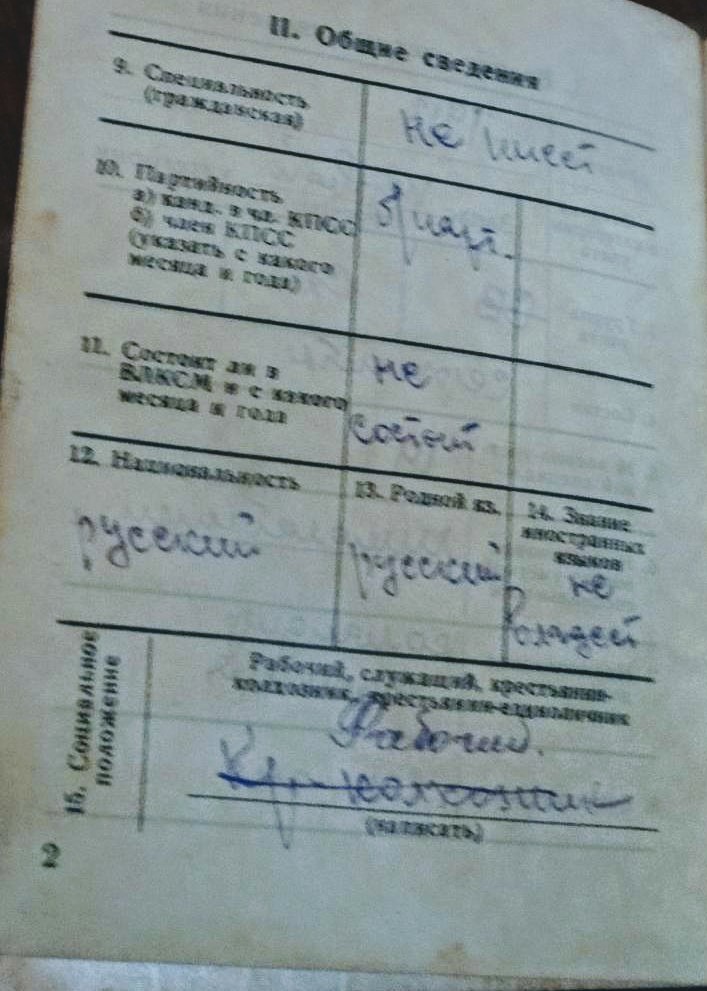 II. Общие сведения
9. Специальность
(гражданская)
не имеет
10. Партийность
а) канд. в чл. КПСС
б) член КПСС
(указать с какого
месяца и года)
б/парт.
11. Состоит ли в
ВЛКСМ и с какого
месяца и года
не
состоит
12. Национальность
русский
13. Родной яз.
русский
14. Знание
иностранных
языков
не
владеет
15. Социальное
положение
Рабочий, служащий, крестьянин-
колхозник, крестьянин-единоличник
Рабочий.
Кр-колхозник
(написать)
2